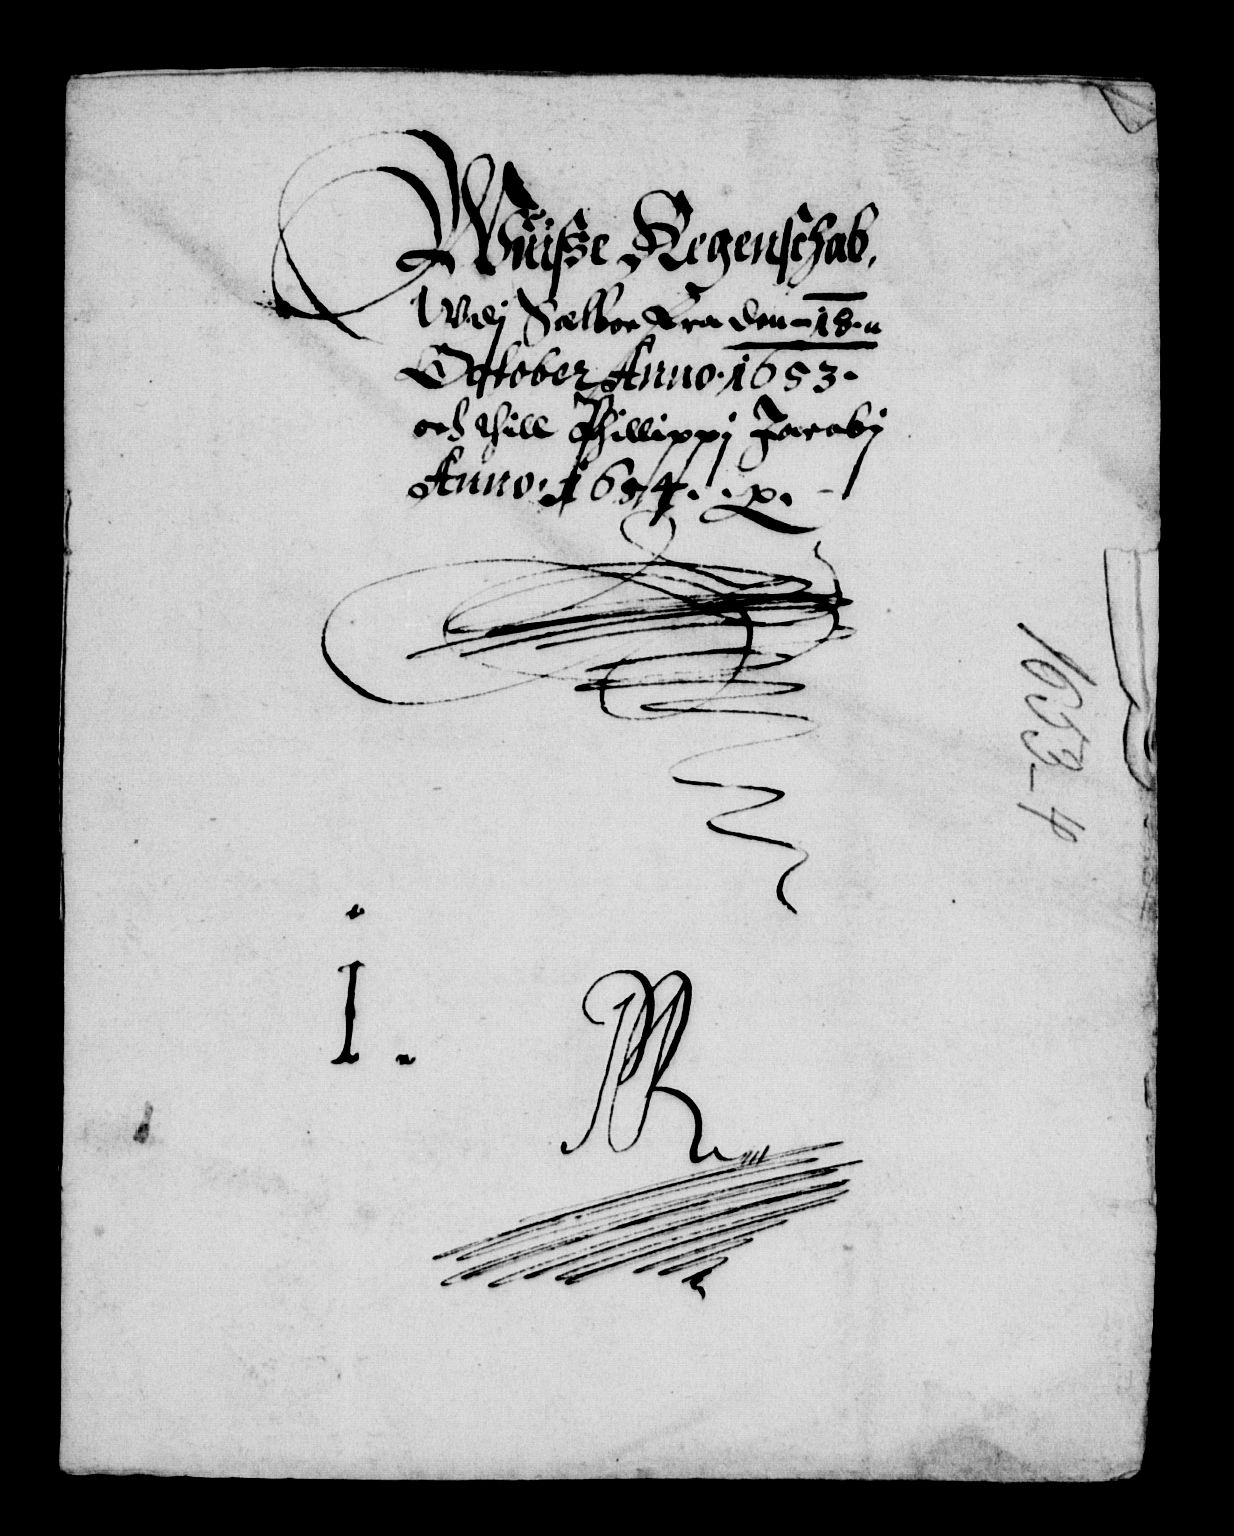 Wüisße Regenschab,
Wdj Sælboe Fra den 18.
October Anno. 1653.
och thill Phillippj Jacobj
Anno. 1654.
1653-4
I.